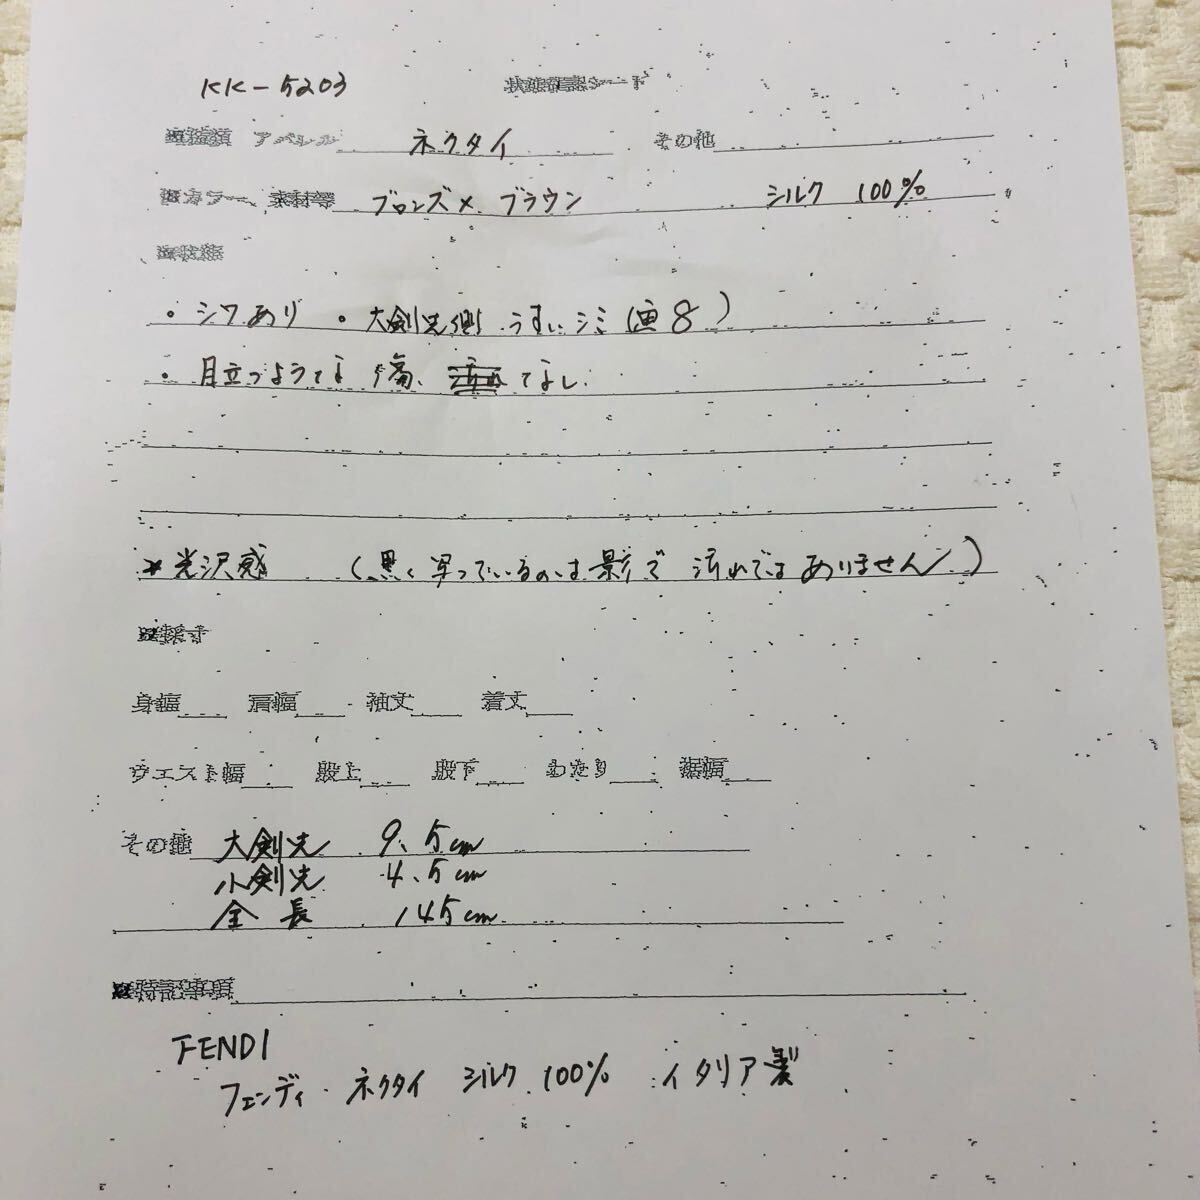 KK-5203 状態確認シート
■種類 アパレル ネクタイ その他
■カラー、素材等 ブロンズ×ブラウン シルク 100%
■状態
・シワあり ・大剣先側 うすいシミ(画8)
・目立つような傷、なし.
★光沢感 (黒く写っているのは影で汚れではありません)
■採寸
身幅 肩幅 袖丈 着丈
ウエスト幅 股上 股下 わたり 裾幅
その他 大剣先 9.5cm
小剣先 4.5cm
全長 145cm
■特記事項
FENDI
フェンディ ネクタイ シルク 100% イタリア製